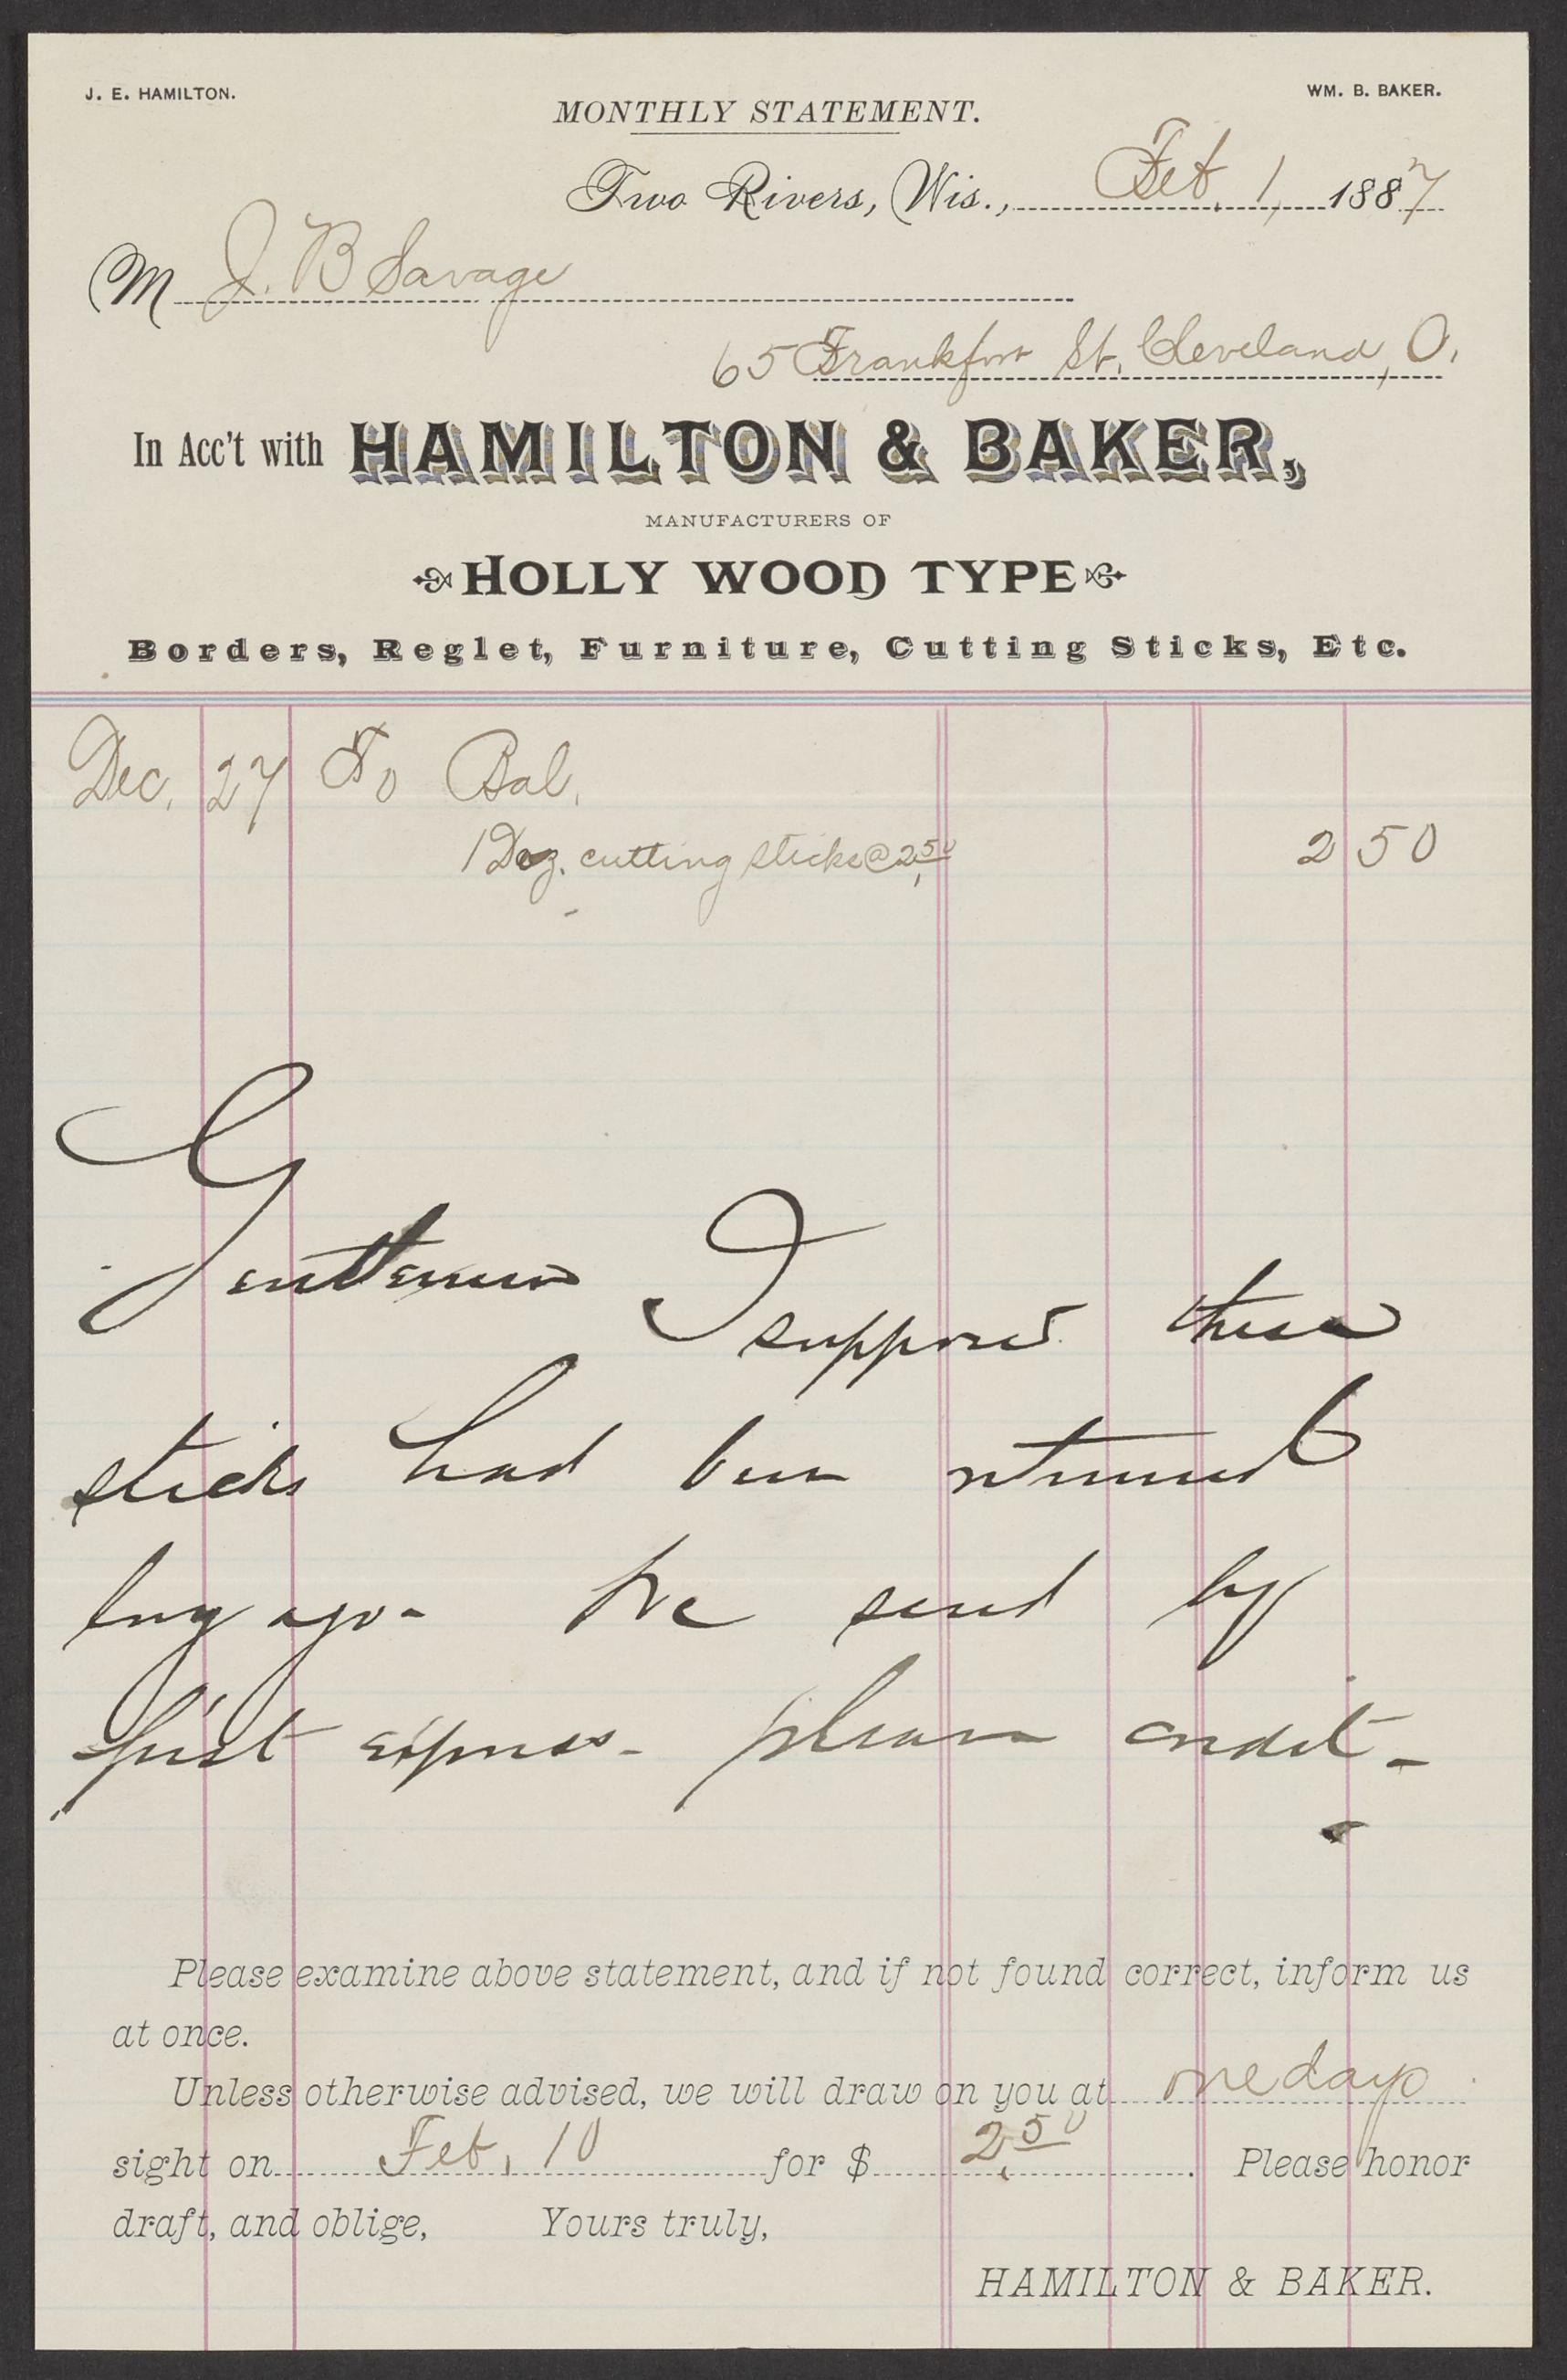 J. E. HAMILTON.
WM. B. BAKER.
MONTHLY STATEMENT.
Two Rivers, Wis., Feb. 1, 1887
M J. B Savage
65 Frankfort St. Cleveland, O.
In Acc't with HAMILTON & BAKER,
MANUFACTURERS OF
HOLLY WOOD TYPE
Borders, Reglet, Furniture, Cutting Sticks, Etc.
Dec. 27 To Bal.
1 Doz. cutting sticks @ 2.50 2 50
Gentlemen I supposed these
sticks had been returned
long ago - We send by
first express - please credit -
Please examine above statement, and if not found correct, inform us
at once.
Unless otherwise advised, we will draw on you at one days
sight on Feb. 10 for $ 2.50. Please honor
draft, and oblige, Yours truly,
HAMILTON & BAKER.